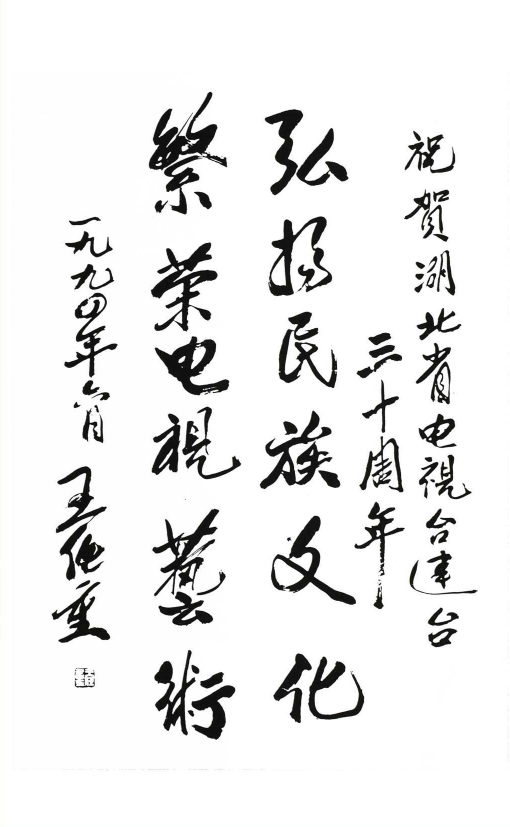 祝賀湖北省电視台建台
三十周年
弘扬民族文化
繁荣电視藝術
一九九四年六月
王任重